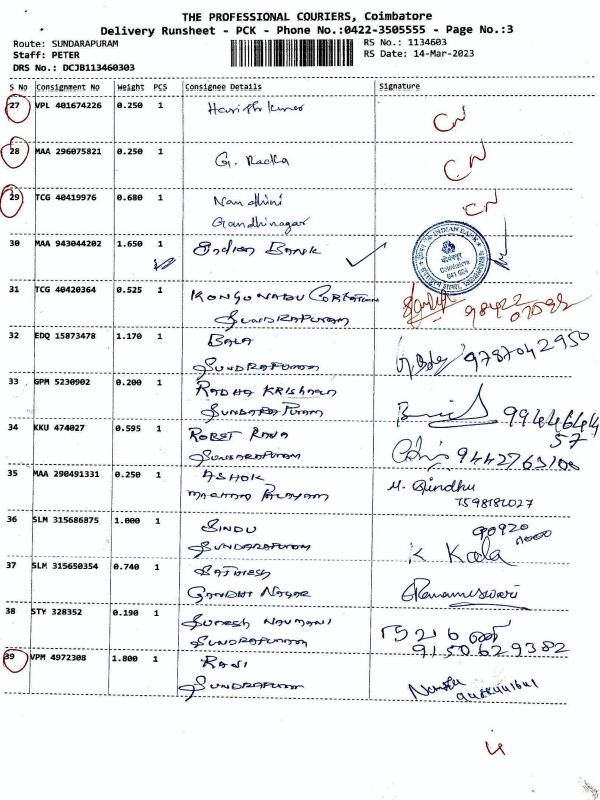 THE PROFESSIONAL COURIERS, Coimbatore
Delivery Runsheet - PCK - Phone No.:0422-3505555 - Page No.:3
Route: SUNDARAPURAM
RS No.: 1134603
Staff: PETER
RS Date: 14-Mar-2023
DRS No.: DCJB113460303
S No Consignment No Weight PCS Consignee Details Signature
27 VPL 401674226 0.250 1
CN
28 MAA 296075821 0.250 1 G. Radha
CN
29 TCG 40419976 0.680 1 Nandhini
CN
Gandhinagar
30 MAA 943044202 1.650 1 Indian Bank
INDIAN BANK
31 TCG 40420364 0.525 1 KONGUNADU
98422
SUNDRAPURAM
07092
32 EDQ 15873478 1.170 1 BALA
9787042950
SUNDRAPURAM
33 GPM 5230902 0.200 1 RADHA KRISHANA
SUNDARAPURAM
99446644
57
34 KKU 474027 0.595 1 ROBET RAJA
SUNDARAPURAM
35 MAA 290491331 0.250 1 ASHOK
MACHAM PALAYAM
M. Sindhu
7598182027
36 SLM 315686875 1.000 1 SINDU
90920
SUNDARAPURAM
K Kala
37 SLM 315650354 0.740 1
GANDHI NAGAR
Ranameswari
38 STY 328352 0.190 1 SURESH NAUMANI
SUNDRAPURAM
9150629382
39 VPM 4972308 1.800 1 RANI
SUNDRAPURAM